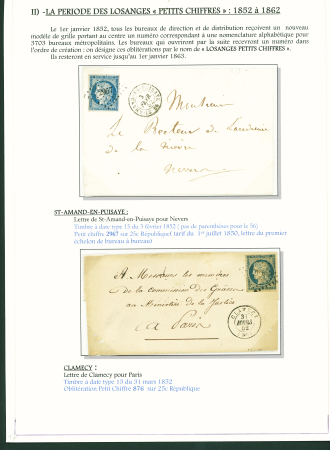 II) -LA PERIODE DES LOSANGES « PETITS CHIFFRES » : 1852 à 1862
Le 1er janvier 1852, tous les bureaux de direction et de distribution reçoivent un nouveau
modèle de grille portant au centre un numéro correspondant à une nomenclature alphabétique pour
3703 bureaux métropolitains. Les bureaux qui ouvriront par la suite recevront un numéro dans
l'ordre de création : on désigne ces oblitérations par le nom de « LOSANGES PETITS CHIFFRES ».
Ils resteront en service jusqu'au 1er janvier 1863.
Monsieur
Le Recteur de
de la
Nevers
ST-AMAND-EN-PUISAYE :
Lettre de St-Amand-en-Puisaye pour Nevers
Timbre à date type 15 du 3 février 1852 ( pas de parenthèses pour le 56)
Petit chiffre 2967 sur 25c République( tarif du 1er juillet 1850, lettre du premier
échelon de bureau à bureau)
A Messieurs les membres
de la commission des Grâces
au Ministère de la Justice
a Paris
CLAMECY
31
MARS
52
CLAMECY :
Lettre de Clamecy pour Paris
Timbre à date type 15 du 31 mars 1852
Oblitération Petit Chiffre 876 sur 25c République